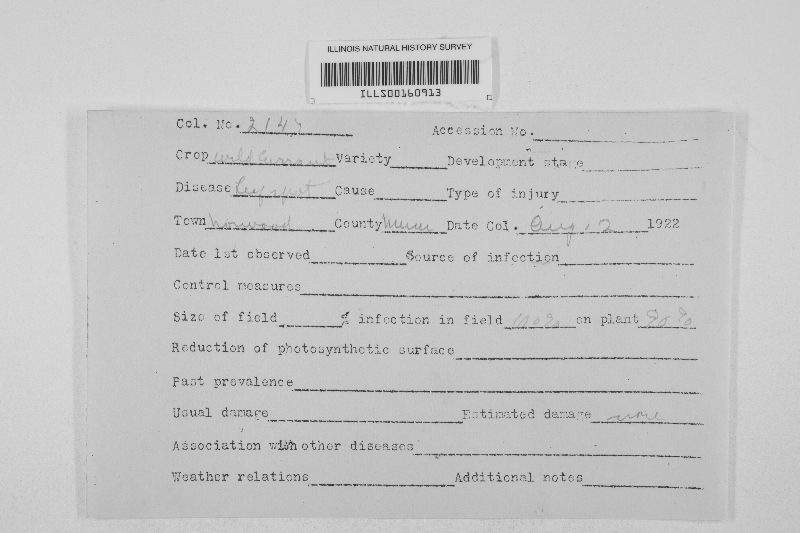 ILLINOIS NATURAL HISTORY SURVEY
ILLS00160913
Col. No. 2147 Accession No.
Crop wild currant Variety Development stage
Disease leaf spot Cause Type of injury
Town Norwood County Mercer Date Col. Aug. 12 1922
Date 1st observed Source of infection
Control measures
Size of field % infection in field 100% on plant 80%
Reduction of photosynthetic surface
Past prevalence
Usual damage Estimated damage none
Association with other diseases
Weather relations Additional notes